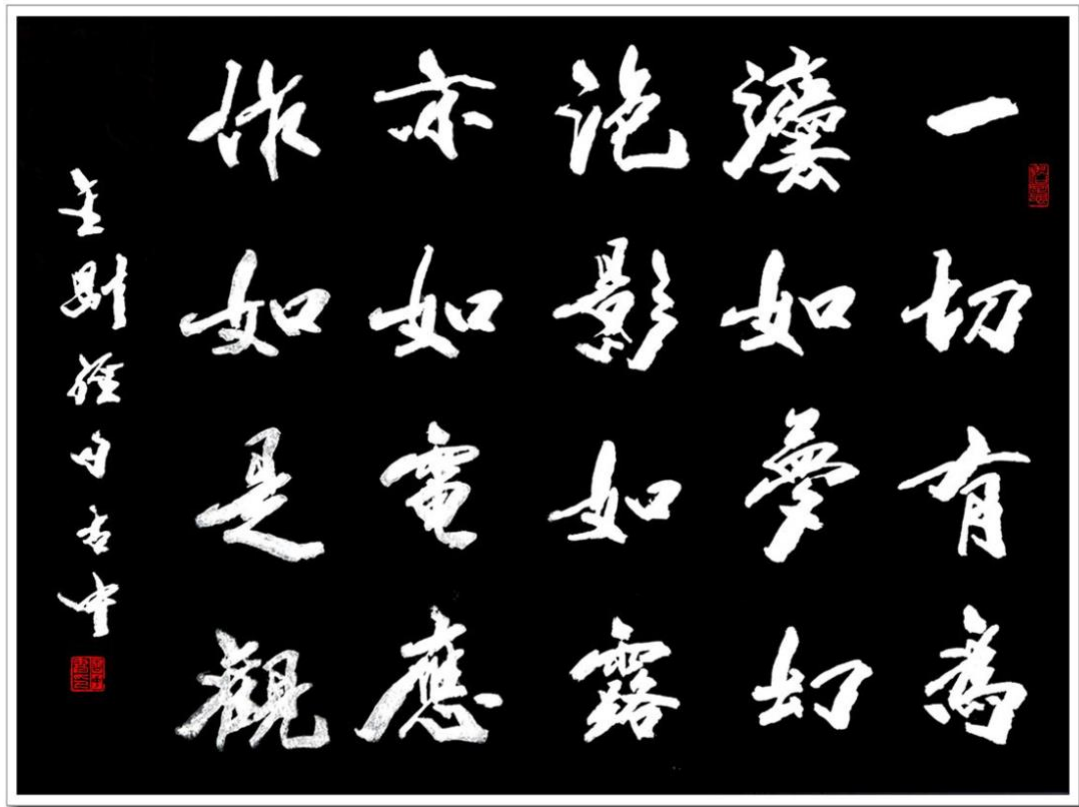 一切有為
灋如夢幻
泡影如露
亦如電應
作如是觀
金剛經句中